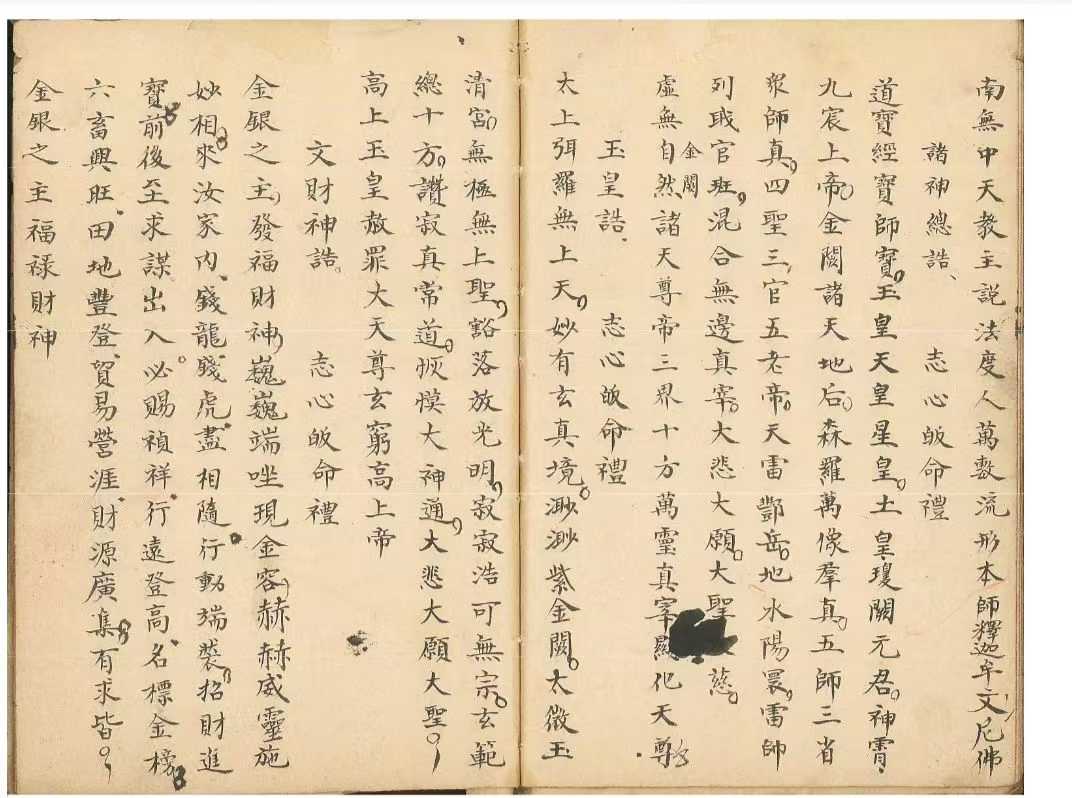 南無中天教主説法度人萬數流形本師釋迦牟文尼佛
諸神總誥、 志心皈命禮
道寶經寶師寶玉皇天皇星皇。土皇瓊闕元君。神霄
九宸上帝。金闕諸天地后。森羅萬像羣真。五師三省
眾師真。四聖三官五老帝。天雷酆岳。地水陽寰。雷師
列戟官班。混合無邊真宰。大悲大願。大聖 慈。
金闕
虛無自然諸天尊帝三界十方萬靈真宰顯化天尊
玉皇誥、 志心皈命禮
太上弭羅無上天。妙有玄真境。渺渺紫金闕。太微玉
清宮。無極無上聖。豁落放光明。寂寂浩可無宗。玄範
總十方。讚寂真常道。恢漠大神通。大悲大願大聖
高上玉皇赦罪大天尊玄窮高上帝
文財神誥。 志心皈命禮
金銀之主。發福財神。巍巍端坐現金容。赫赫威靈施
妙相。來汝家內、錢龍錢虎盡相隨、行動端裝。招財進
寶。前後至求謀出入。必賜禎祥、行遠登高、名標金榜。
六畜興旺、田地豐登、貿易營涯、財源廣集。有求皆
金銀之主福禄財神